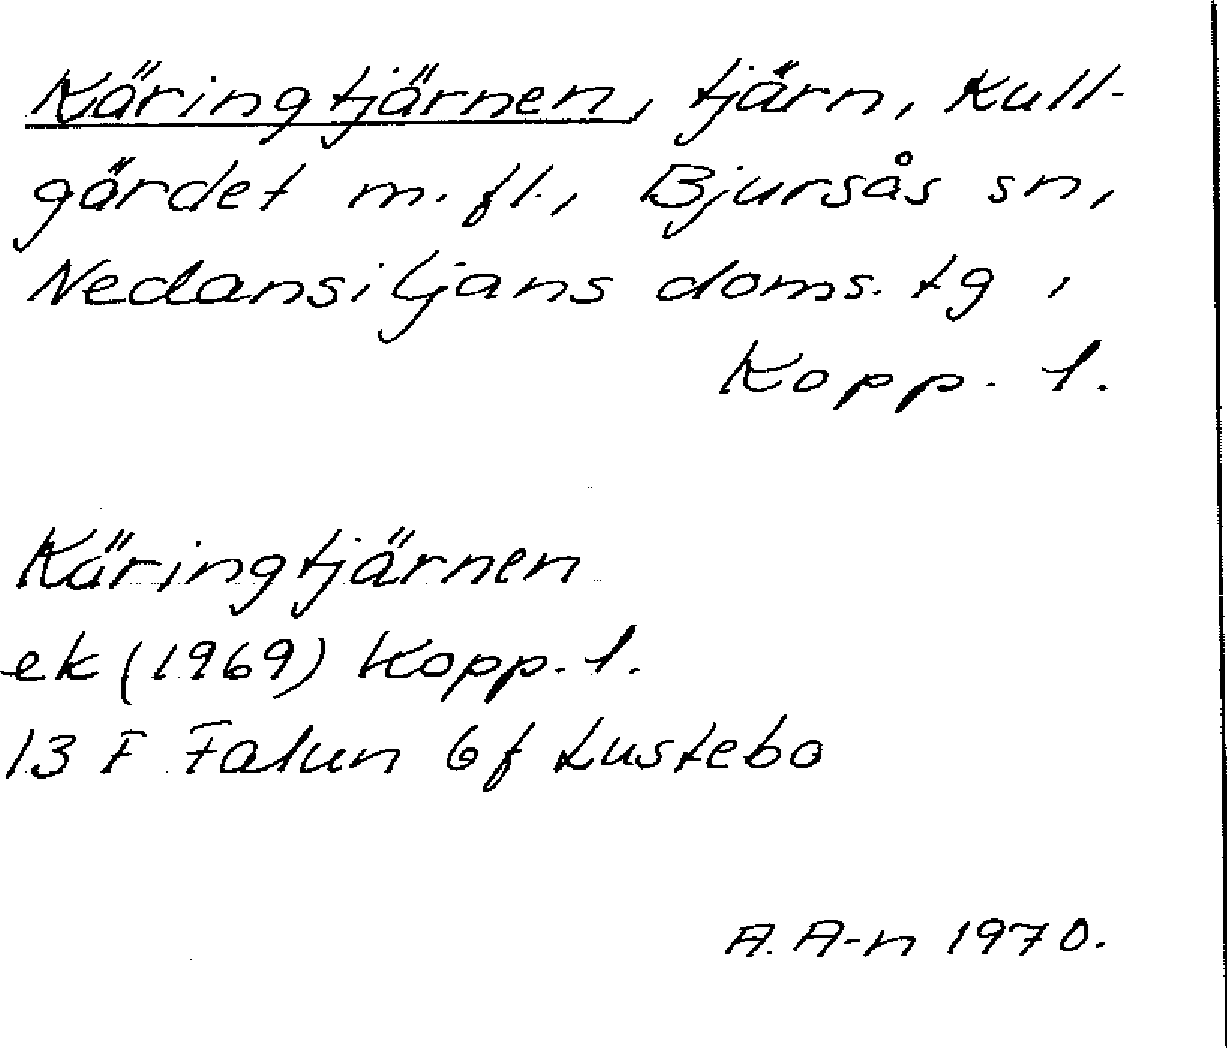 Käringtjärnen, tjärn, Kull-
gärdet m.fl., Bjursås sn,
Nedansiljans doms. tg,
Kopp. l.
Käringtjärnen
ek (1969) Kopp. l.
13 F Falun 6f Lustebo
A. A-n 1970.